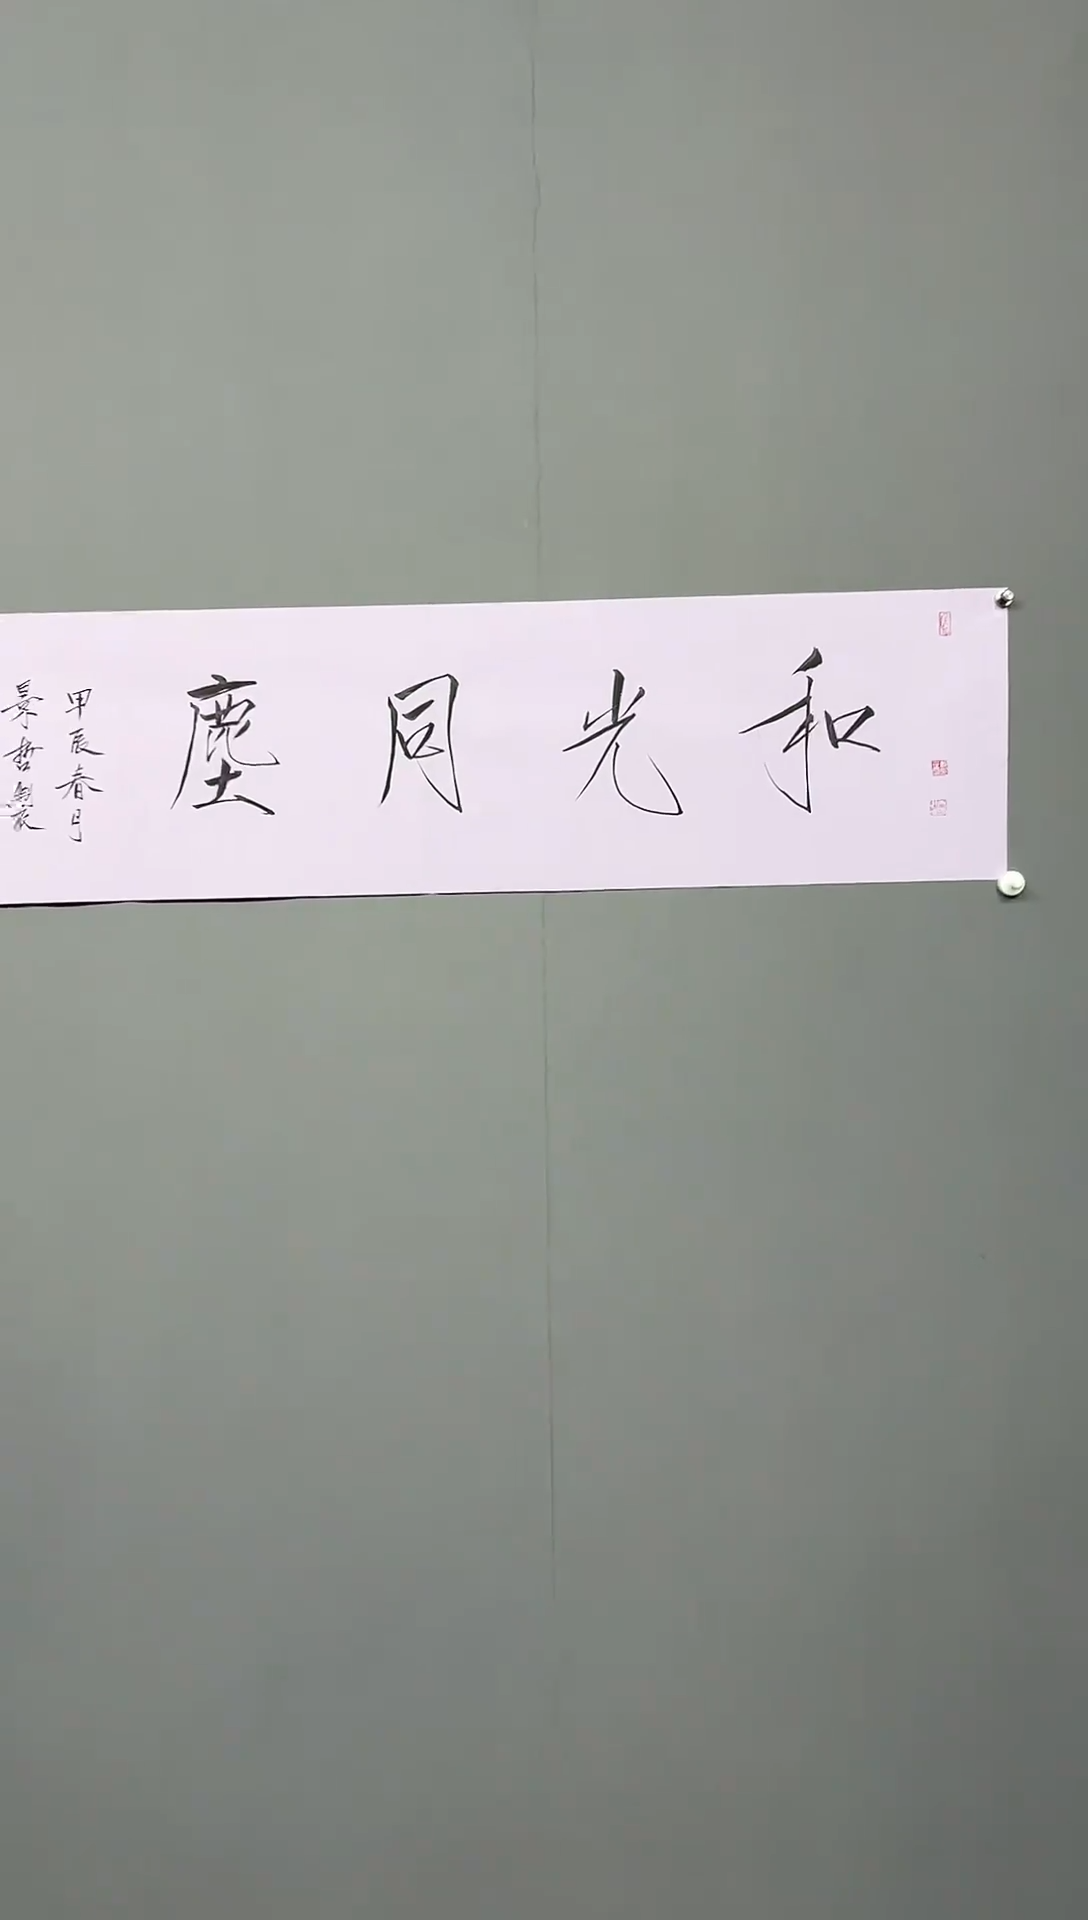 和光同塵
甲辰春月